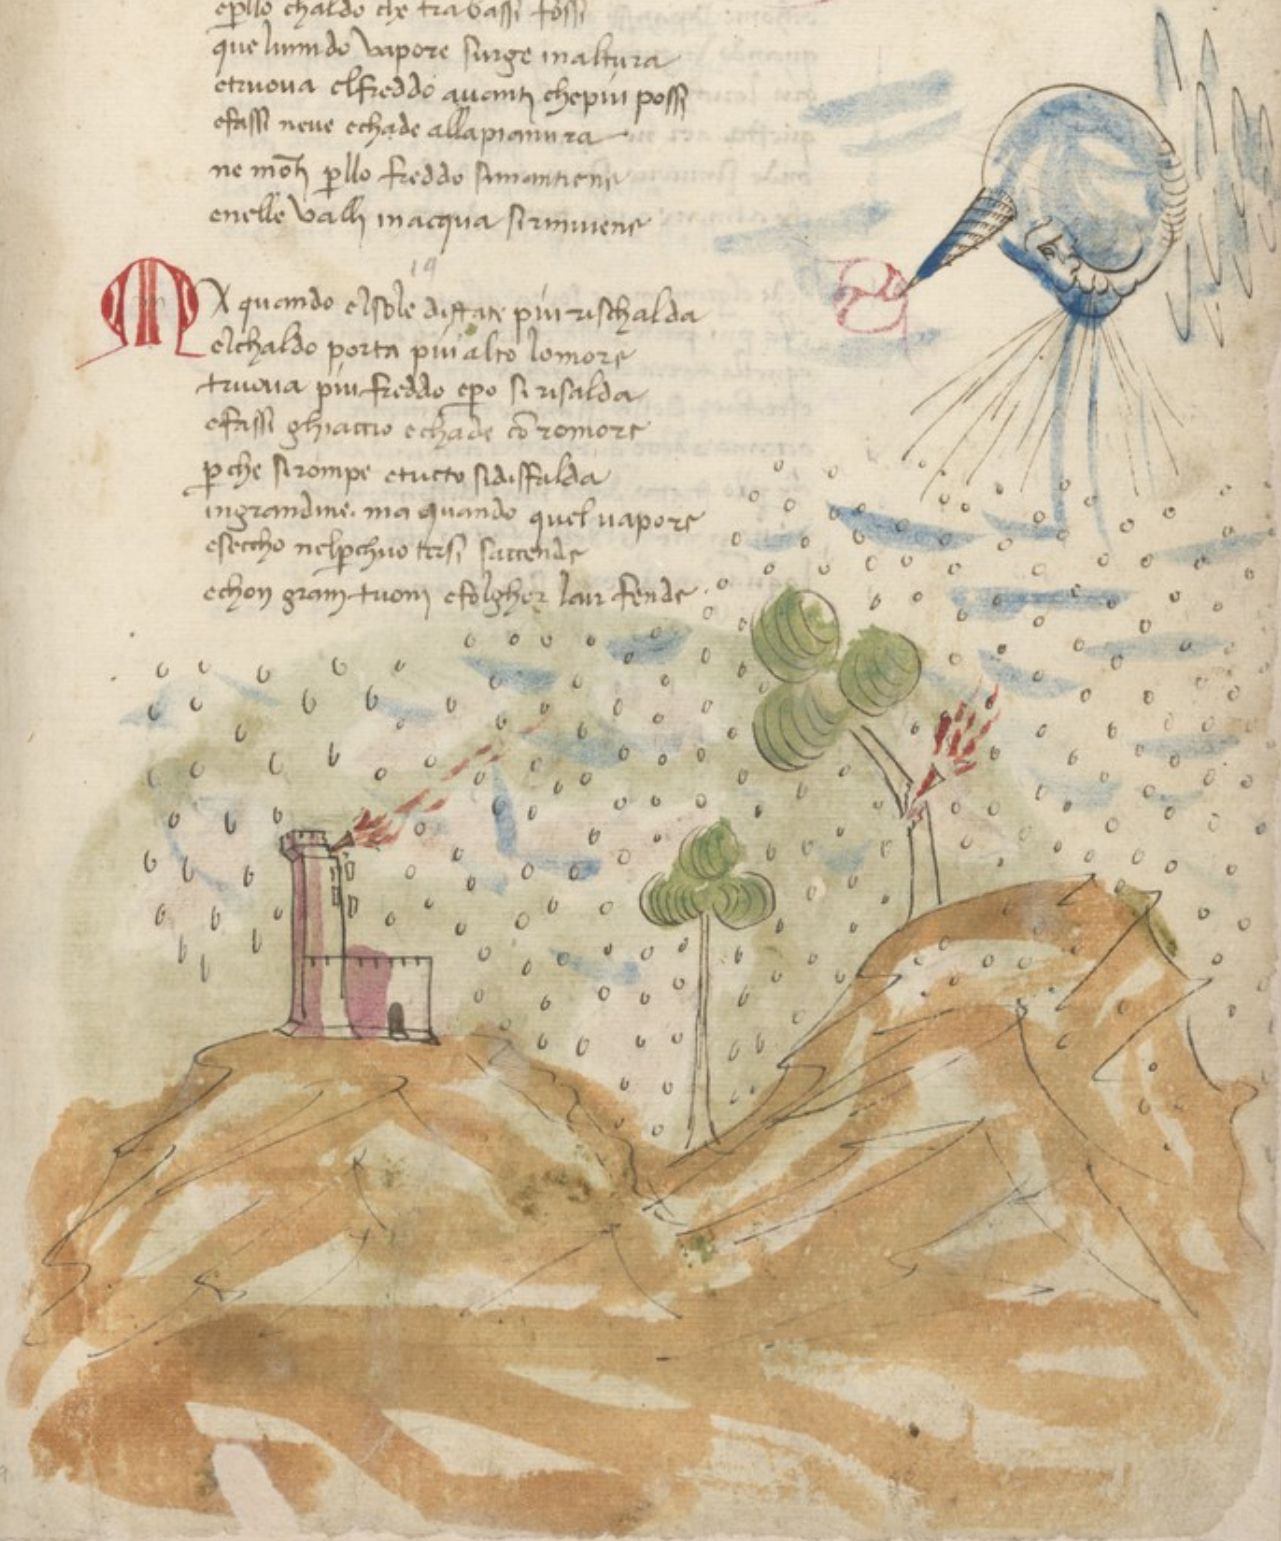 epllo chaldo che trabassi fossi
quel humido vapore surge inaltura
etruova elfreddo auanti chepiu possi
efassi neue echade allapianura
ne moti pllo freddo simantiene
enelle valli inacqua siriuiene
19
MA quando elsole distate piu rischalda
elchaldo porta piu alto lomore
truoua piu freddo epo si risalda
efassi ghiaccio echade co romore
pche sirompe etucto sidisfalda
ingrandine. ma quando quel uapore
eseccho nelpchuoters saccende
echon gram tuoni efolghor lair fende